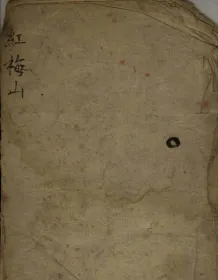 紅梅山